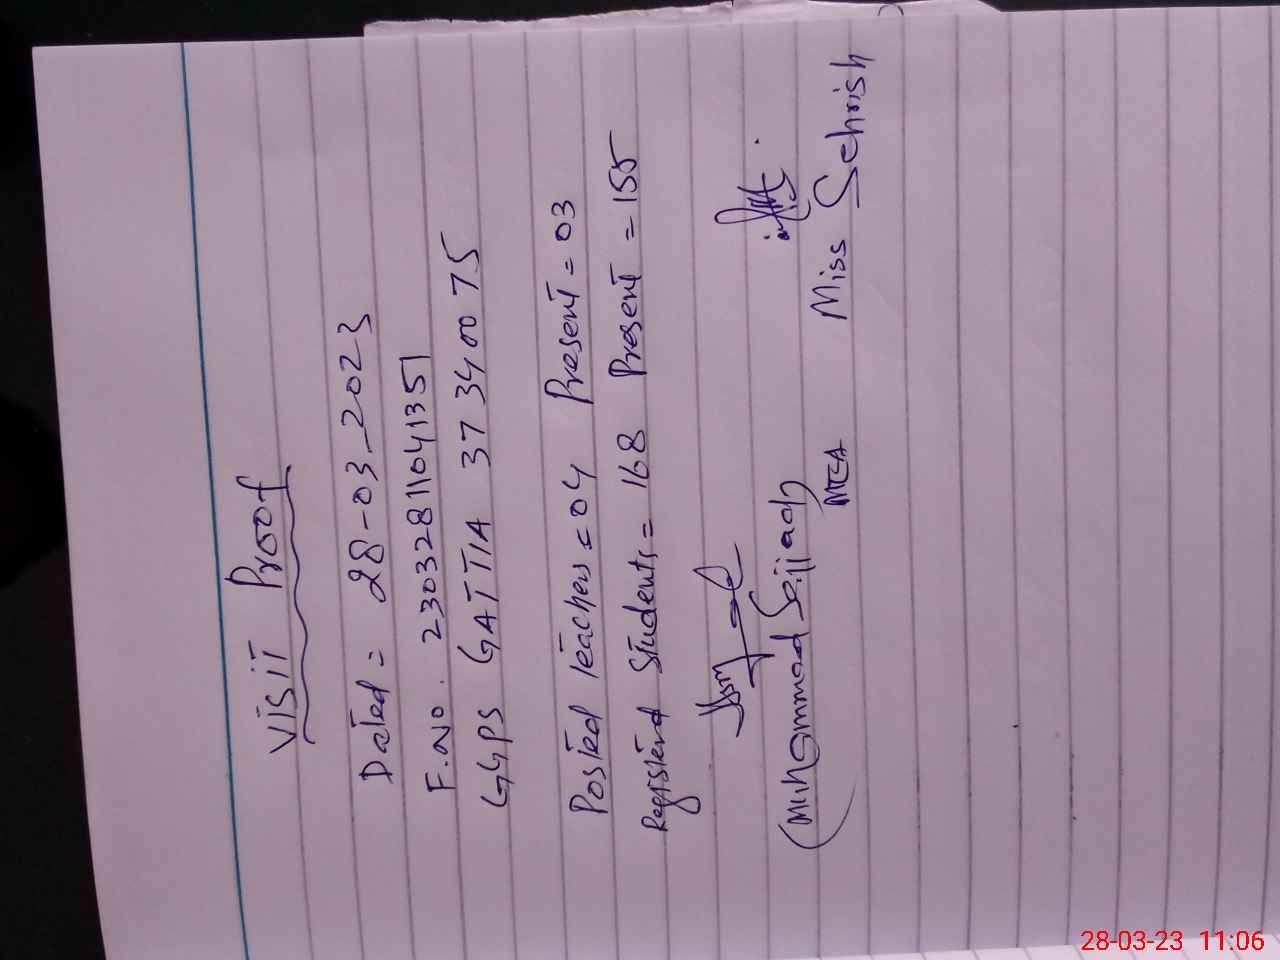 Visit Proof
Dated = 28-03-2023
F.No. 230328110411351
GGPS GATTIA 37340075
Posted Teachers = 04 Present = 03
Registerd Students = 168 Present = 155
(Muhammad Sajjad)
MEA Miss Sehrish
28-03-23 11:06